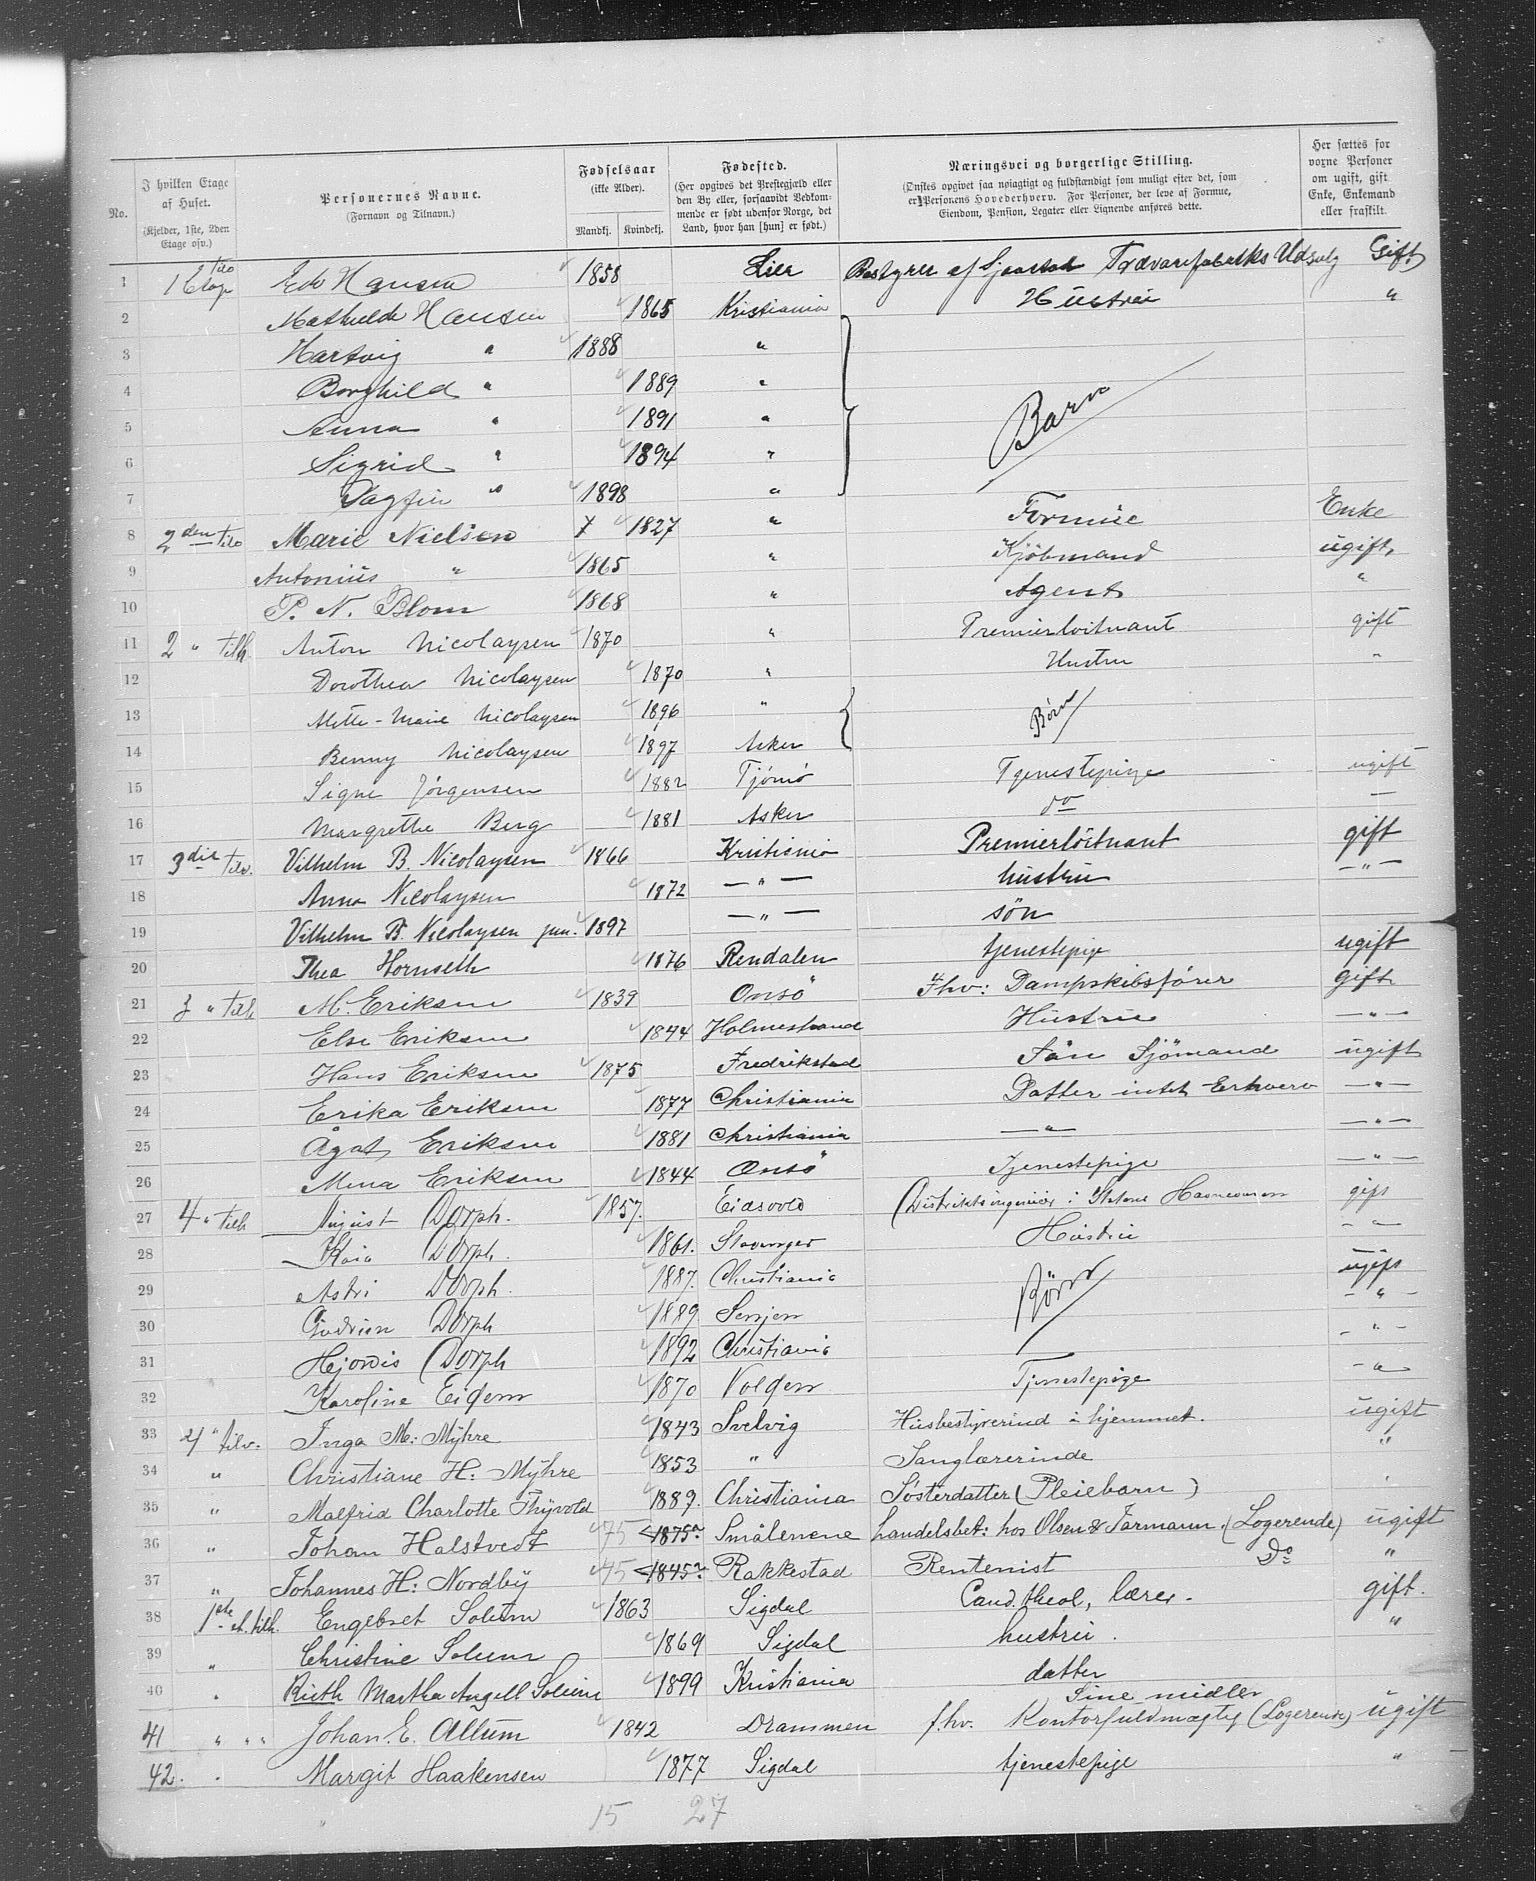 No.
I hvilken Etage af Huset. (Kjelder, 1ste, 2den Etage osv.)
Personernes Navne. (Fornavn og Tilnavn.)
Fødselsaar (ikke Alder). Mandkj. Kvindekj.
Fødested. (Her opgives det Prestegjæld eller den By eller, forsaavidt Vedkommende er født udenfor Norge, det Land, hvor han [hun] er født.)
Næringsvei og borgerlige Stilling. (Ønskes opgivet saa nøiagtigt og fuldstændigt som muligt efter det, som er Personens Hovederhverv. For Personer, der leve af Formue, Eiendom, Pension, Legater eller Lignende anføres dette.)
Her sættes for voxne Personer om ugift, gift, Enke, Enkemand eller fraskilt.
1 1 Etage Edv Hansen 1858 Lier Bestyrer af Trævarefabriks Udsalg Gift
2 Mathilde Hansen 1865 Kristiania Hustru "
3 Hartvig " 1888 "
4 Borghild " 1889 "
5 Anna " 1891 " Barn
6 Sigrid " 1894 "
7 Dagfin " 1898 "
8 2den tilv Marie Nielsen x 1827 " Formue Enke
9 Antonius " 1865 " Kjöbmand ugift
10 P. N. Blom 1868 " Agent "
11 2 " tilh Anton Nicolaysen 1870 " Premierloitnant gift
12 Dorothea Nicolaysen 1870 " Hustru "
13 Mette-Marie Nicolaysen 1896 " Børn
14 Benny Nicolaysen 1897 Asker
15 Signe Jørgensen 1882 Tjömö Tjenestepige ugift
16 Margrethe Berg 1881 Asker do —
17 3die tilv. Vilhelm B. Nicolaysen 1866 Kristiania Premierlöitnant gift
18 Anna Nicolaysen 1872 — " — hustru — " —
19 Vilhelm B. Nicolaysen jun. 1897 — " — sön
20 Thea Hornseth 1876 Rendalen tjenestepige ugift
21 3 " tilh M. Eriksen 1839 Onsö Fhv: Dampskibsförer gift
22 Else Eriksen 1844 Holmestrand Hustru — " —
23 Hans Eriksen 1875 Fredrikstad Sön Sjömand ugift
24 Erika Eriksen 1877 Christiania Datter intet Erhverv — " —
25 Ågot Eriksen 1881 Christiania — " — — " —
26 Mina Eriksen 1844 Onsö Tjenestepige — " —
27 4 " tilh August Dorph. 1857. Eidsvold Distriktsingeniør i Statens Havnevæsen gift
28 Kaia Dorph. 1861. Stavanger Hustru — " —
29 Astri Dorph. 1887. Christiania Børn ugift
30 Gudrun Dorph 1889 Senjen — " —
31 Hjordis Dorph 1892 Christiania — " —
32 Karoline Eidem 1870 Volden Tjenestepige — " —
33 4 " tilv. Inga M: Myhre 1843 Svelvig Husbestyrerind i hjemmet. ugift
34 " Christiane H: Myhre 1853 " Sanglærerinde "
35 " Malfrid Charlotte Thyvold 1889. Christiania Søsterdatter (Pleiebarn) "
36 " Johan Halstvedt 75 1875 Smålenene handelsbet: hos Olsen & Tarmann. (Logerende) ugift
37 " Johannes H: Nordby 45 1845 Rakkestad Rentenist Do "
38 1ste et. tilh. Engebret Solum 1863 Sigdal Cand. theol, lærer. gift.
39 " Christine Solum 1869 Sigdal hustru. "
40 " Ruth Martha Angell Solum 1899 Kristiania datter
41 " " " Johan. E. Allum 1842 Drammen Sine midler f.hv. Kontorfuldmægtig (Logerende) ugift
42. " Margit Haakensen 1877 Sigdal tjenestepige "
15 27